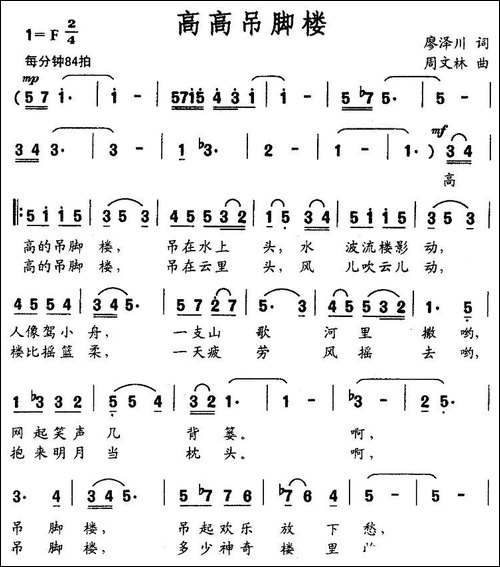 高高吊脚楼
1=F 2/4
廖泽川 词
每分钟84拍
周文林 曲
mp
(5 7 i· | i - | 5 7 i 5 4 3 i | i - | 5 ♭7 5· |
mf
3 4 3· | 3 - | 1 ♭3· | 2 - | 1 - | 1· ) 3 4 |
高
5 i i 5 | 3 5 3 | 4 5 5 3 2 | 1 5 3 4 | 5 i i 5 | 3 5 3 |
高的吊脚 楼, 吊在水上 头,水 波流楼影 动,
高的吊脚 楼, 吊在云里 头,风 儿吹云儿 动,
4 5 5 4 | 3 4 5· | 5 7 2 7 | 5 5· | 4 5 5 3 2 | 1· 5 |
人像驾小 舟, 一支山 歌 河里 撇 哟,
楼比摇篮 柔, 一天疲 劳 风摇 去 哟,
1 ♭3 3 2 | 5 5 4 | ♭3 2 | 1· | 1 - | ♭3 - | 2 5· |
网起笑声 几 背 篓。 啊,
抱来明月 当 枕 头。 啊,
3· 4 | 3 4 5· | 5 ♭7 7 6 | 5 ♭7 7 6 | 8 1 4 | 5 - | 5 - |
吊 脚 楼, 吊起欢乐 放 下 愁,
吊 脚 楼, 多少神奇 楼 里